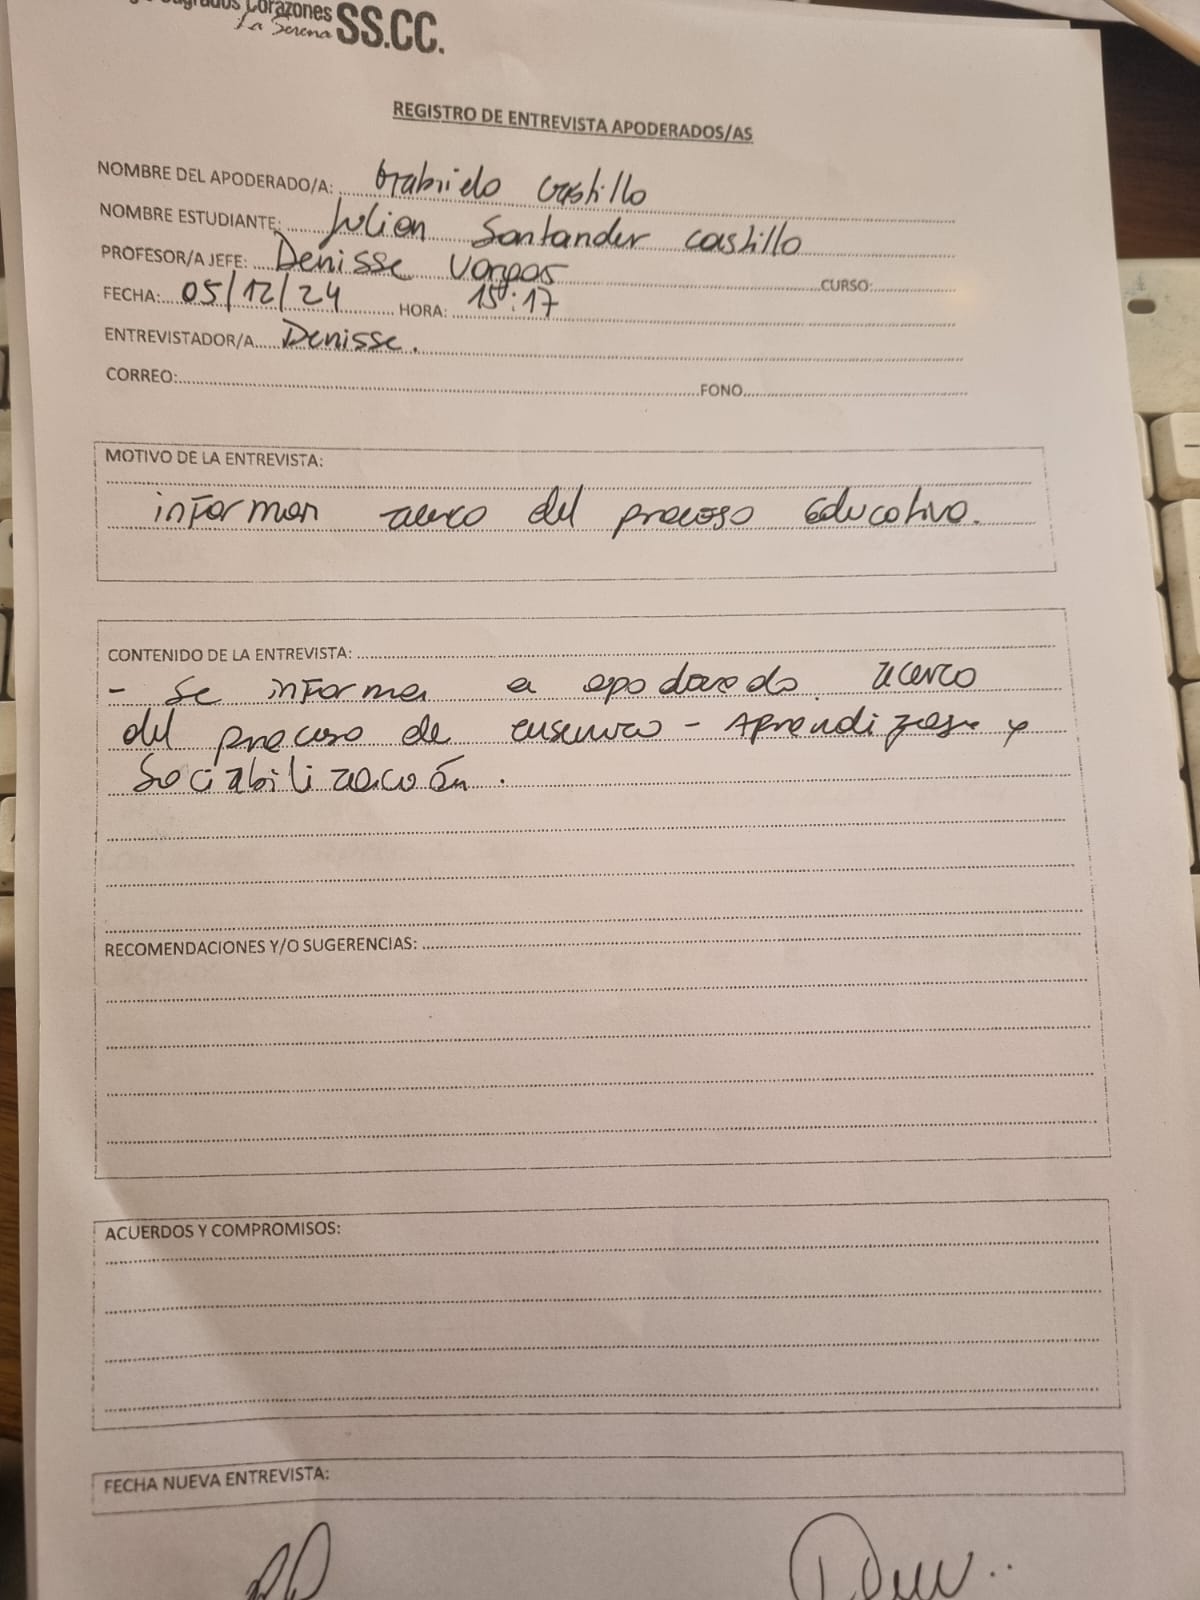 Sagrados Corazones
La Serena SS.CC.
REGISTRO DE ENTREVISTA APODERADOS/AS
NOMBRE DEL APODERADO/A: Gabriela Castillo
NOMBRE ESTUDIANTE: Julian Santander Castillo
PROFESOR/A JEFE: Denisse Vargas CURSO:
FECHA: 05/12/24 HORA: 15:17
ENTREVISTADOR/A Denisse.
CORREO: FONO
MOTIVO DE LA ENTREVISTA:
informar acerca del proceso Educativo.
CONTENIDO DE LA ENTREVISTA:
- Se informa a apoderada. acerca
del proceso de - Aprendizaje y
Sociabilización.
RECOMENDACIONES Y/O SUGERENCIAS:
ACUERDOS Y COMPROMISOS:
FECHA NUEVA ENTREVISTA: